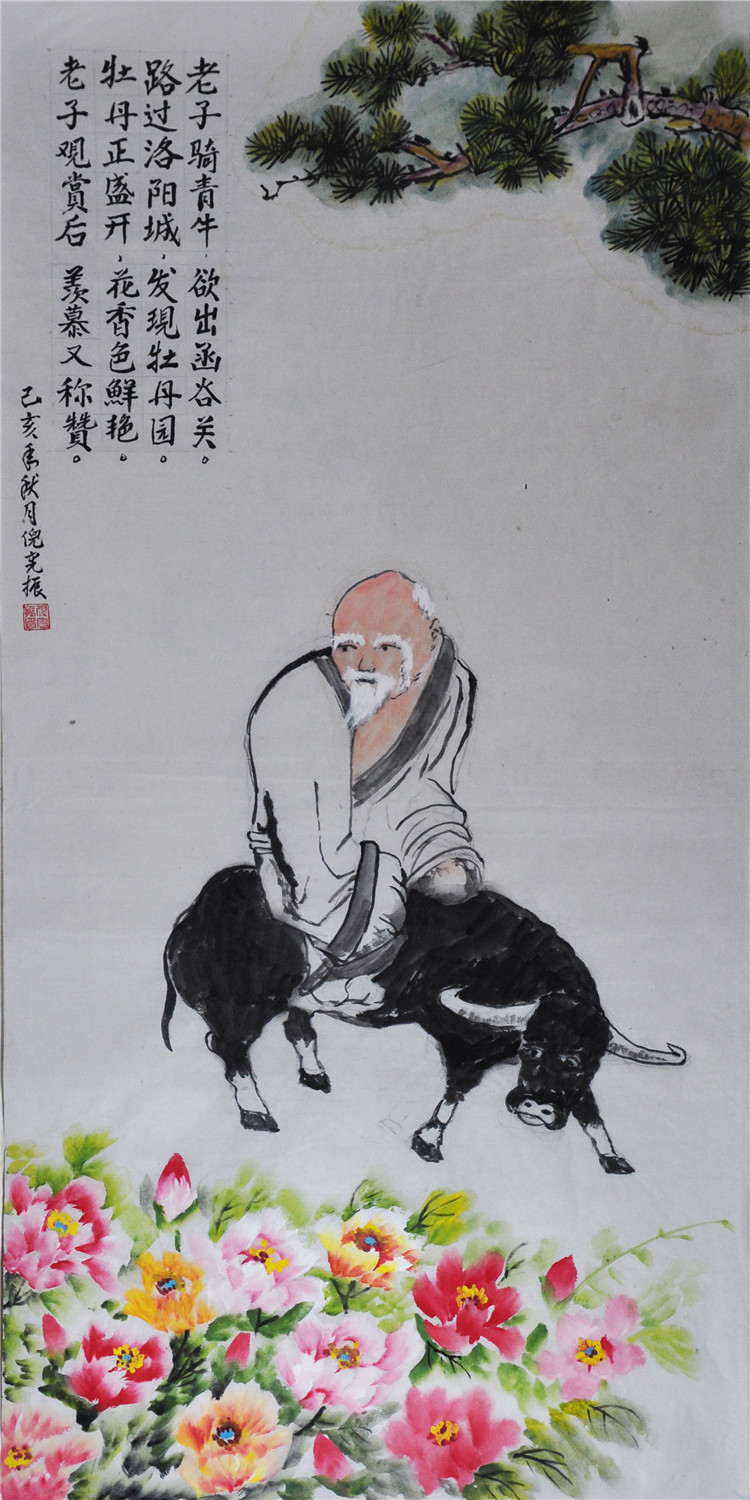 老子骑青牛，欲出函谷关。
路过洛阳城，发现牡丹园。
牡丹正盛开，花香色鲜艳。
老子观赏后 羡慕又称赞。
己亥年秋月倪完振